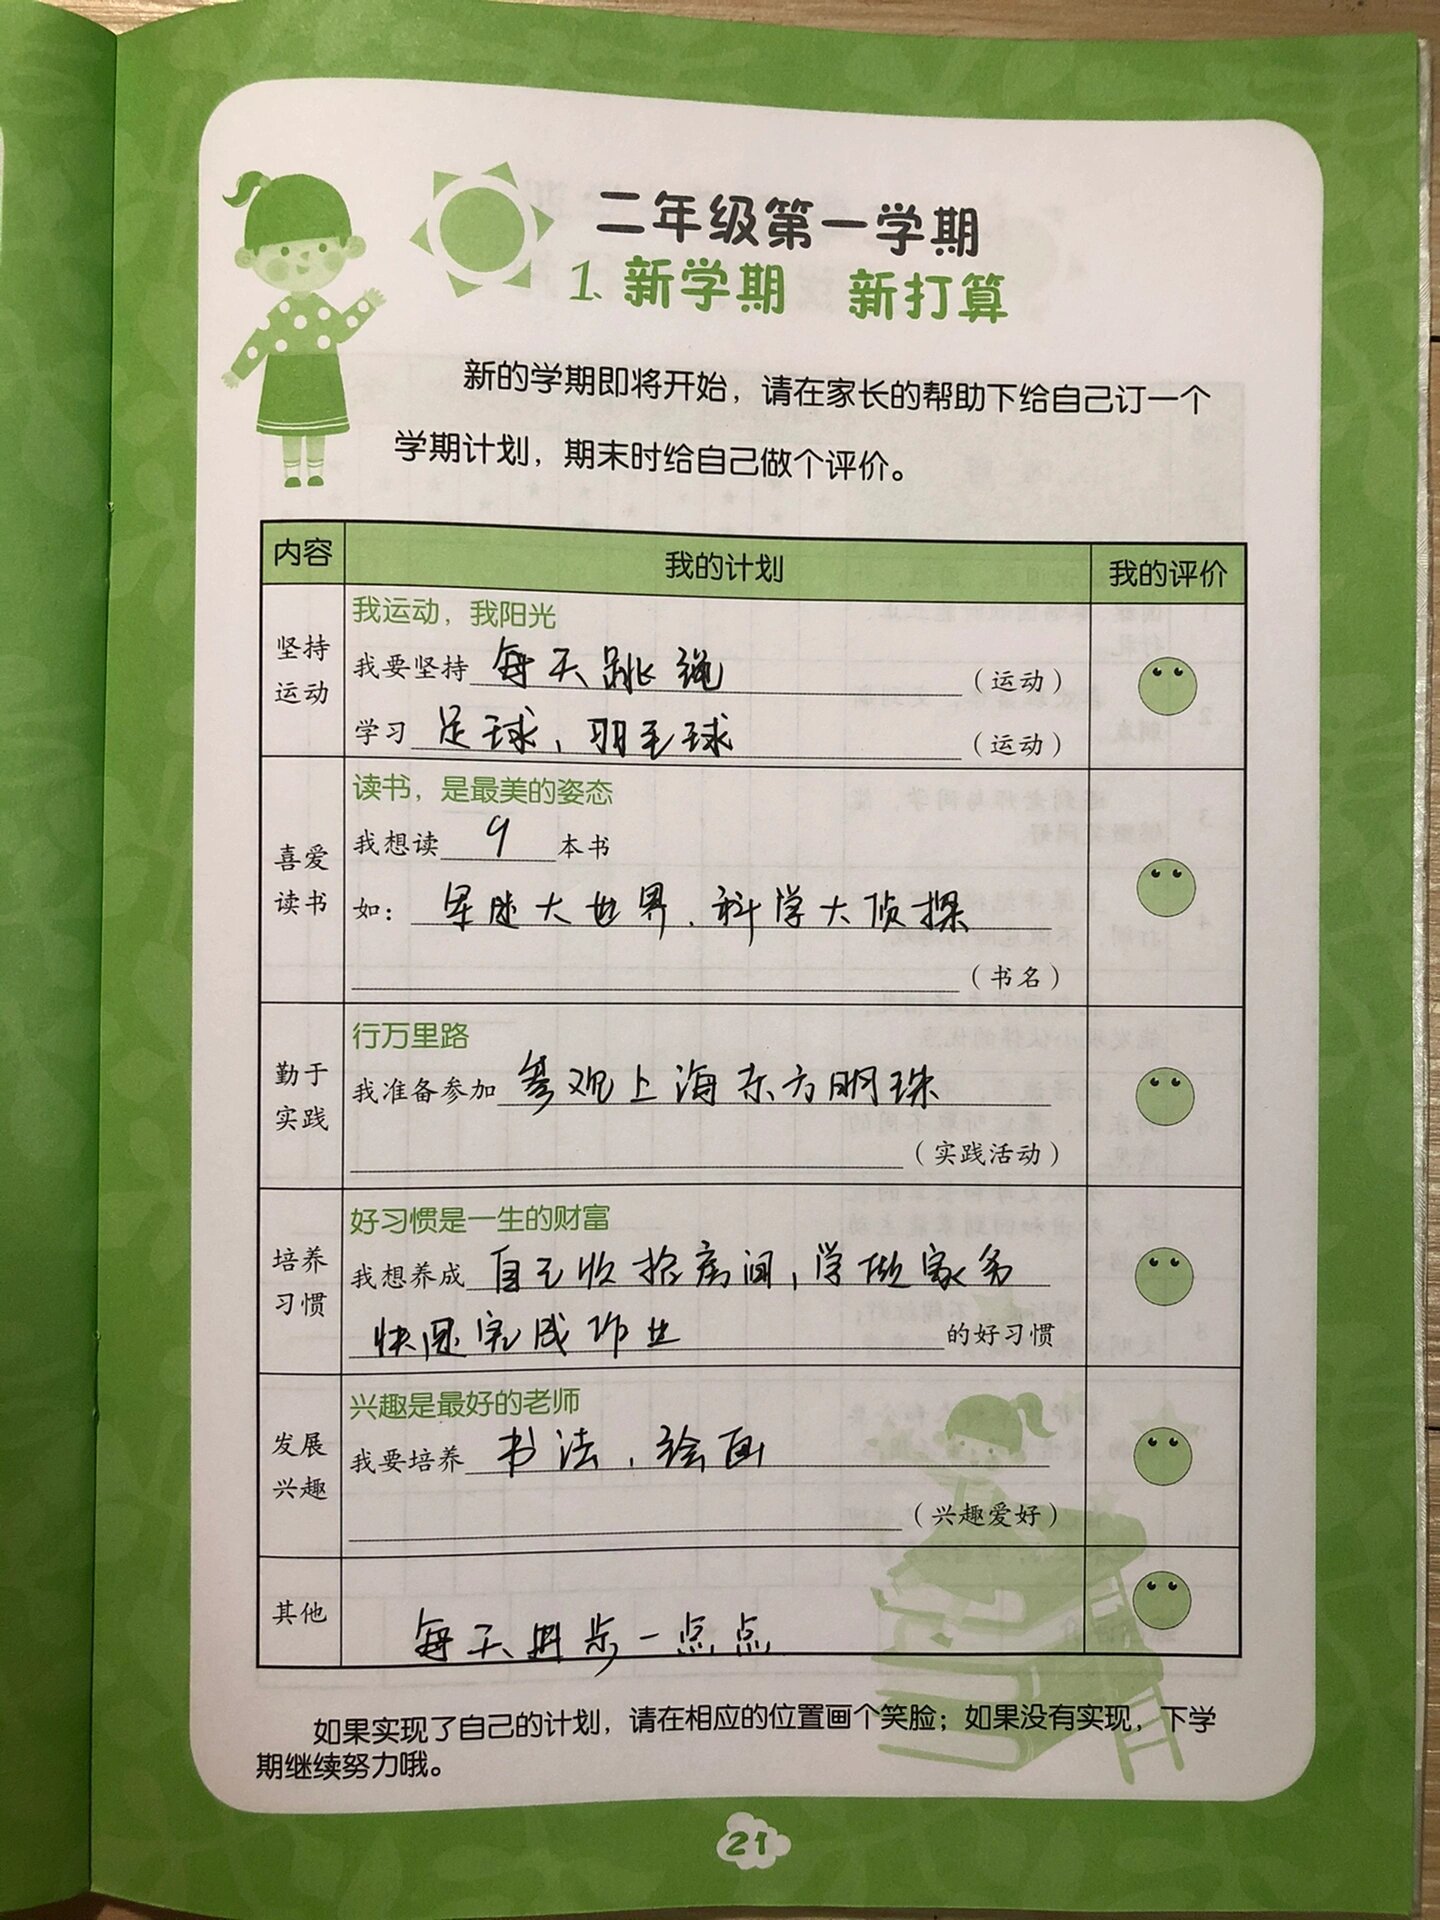 二年级第一学期
1. 新学期 新打算
新的学期即将开始，请在家长的帮助下给自己订一个
学期计划，期末时给自己做个评价。
内容 我的计划 我的评价
坚持
运动
我运动，我阳光
我要坚持 每天跳绳 （运动）
学习 足球，羽毛球 （运动）
喜爱
读书
读书，是最美的姿态
我想读 9 本书
如： 大世界、科学大侦探
（书名）
勤于
实践
行万里路
我准备参加 参观上海东方明珠
（实践活动）
培养
习惯
好习惯是一生的财富
我想养成 自己收拾房间，学做家务
快速完成作业 的好习惯
发展
兴趣
兴趣是最好的老师
我要培养 书法，绘画
（兴趣爱好）
其他
每天进步一点点
如果实现了自己的计划，请在相应的位置画个笑脸；如果没有实现，下学
期继续努力哦。
21